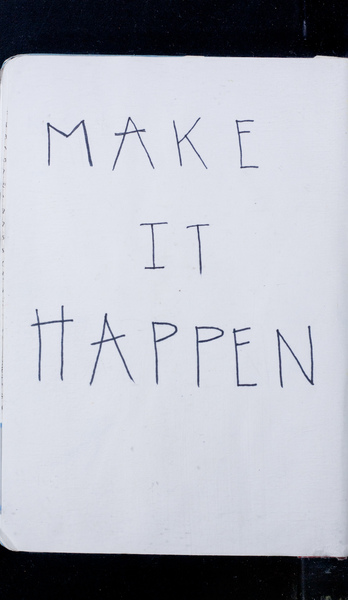 MAKE
IT
HAPPEN